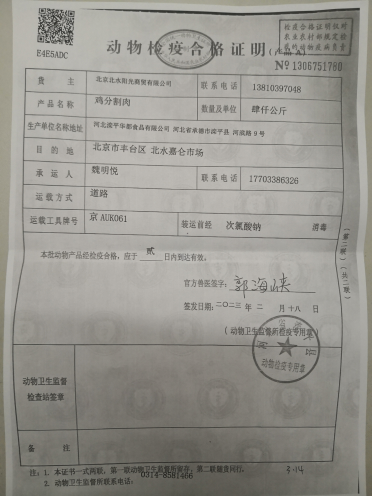 E4E5ADC
动物检疫合格证明(产品A)
检疫合格证明仅对
农业农村部规定检
疫的动物疫病负责
№ 1306751780
货 主 北京北水阳光商贸有限公司 联系电话 13810397048
产品名称 鸡分割肉 数量及单位 肆仟公斤
生产单位名称地址 河北滦平华都食品有限公司 河北省承德市滦平县 河滨路9号
目的地 北京市丰台区 北水嘉仑市场
承运人 魏明悦 联系电话 17703386326
运载方式 道路
运载工具牌号 京AUK061 装运前经 次氯酸钠 消毒
本批动物产品经检疫合格，应于 贰 日内到达有效。
官方兽医签字：郭海侠
签发日期：二〇二三年 二 月十八日
(动物卫生监督所检疫专用章)
动物检疫专用章
动物卫生监督
检查站签章
备 注
(第二联)(共二联)
注：1. 本证书一式两联，第一联动物卫生监督所留存，第二联随货同行。
2. 动物卫生监督所联系电话：0314-8581466
3·14